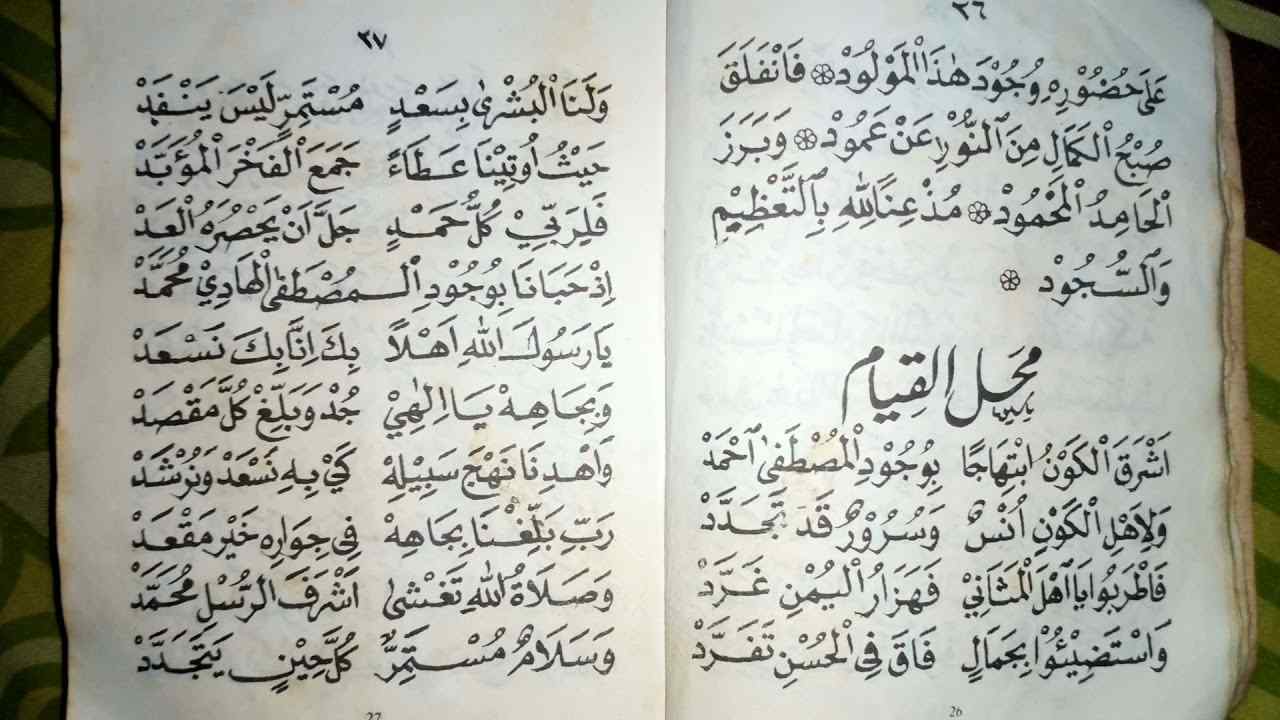 ٢٦
عَلَى حُضُوْرِهِ وُجُوْدَ هٰذَا الْمَوْلُوْدْ ۞ فَانْفَلَقَ
صُبْحُ الْكَمَالِ مِنَ النُّوْرِ عَنْ عَمُوْدْ ۞ وَبَرَزَ
الْحَامِدُ الْمَحْمُوْدْ ۞ مُذْعِنًا لِلّٰهِ بِالتَّعْظِيْمِ
وَالسُّجُوْدْ ۞
محل القيام
اَشْرَقَ الْكَوْنُ ابْتِهَاجًا بِوُجُوْدِ الْمُصْطَفٰى اَحْمَدْ
وَلِاَهْلِ الْكَوْنِ اُنْسٌ وَسُرُوْرٌ قَدْ تَجَدَّدْ
فَاطْرَبُوا يَا اَهْلَ الْمَثَانِيْ فَهَزَارُ الْيُمْنِ غَرَّدْ
وَاسْتَضِيْئُوْا بِجَمَالٍ فَاقَ فِي الْحُسْنِ تَفَرَّدْ
26
٢٧
وَلَنَا الْبُشْرٰى بِسَعْدٍ مُسْتَمِرٍّ لَيْسَ يَنْفَدْ
حَيْثُ اُوتِيْنَا عَطَاءً جَمَعَ الْفَخْرَ الْمُؤَبَّدْ
فَلِرَبِّيْ كُلُّ حَمْدٍ جَلَّ اَنْ يَحْصُرَهُ الْعَدّْ
اِذْ حَبَانَا بِوُجُوْدِ الْـمُصْطَفٰى الْهَادِيْ مُحَمَّدْ
يَا رَسُوْلَ اللهِ اَهْلًا بِكَ اِنَّا بِكَ نَسْعَدْ
وَبِجَاهِهْ يَا اِلٰهِيْ جُدْ وَبَلِّغْ كُلَّ مَقْصَدْ
وَاهْدِنَا نَهْجَ سَبِيْلِهْ كَيْ بِهِ نَسْعَدْ وَنُرْشَدْ
رَبِّ بَلِّغْنَا بِجَاهِهْ فِى جِوَارِهِ خَيْرَ مَقْعَدْ
وَصَلَاةُ اللهِ تَغْشٰى اَشْرَفَ الرُّسْلِ مُحَمَّدْ
وَسَلَامٌ مُسْتَمِرٌّ كُلَّ حِيْنٍ يَتَجَدَّدْ
27